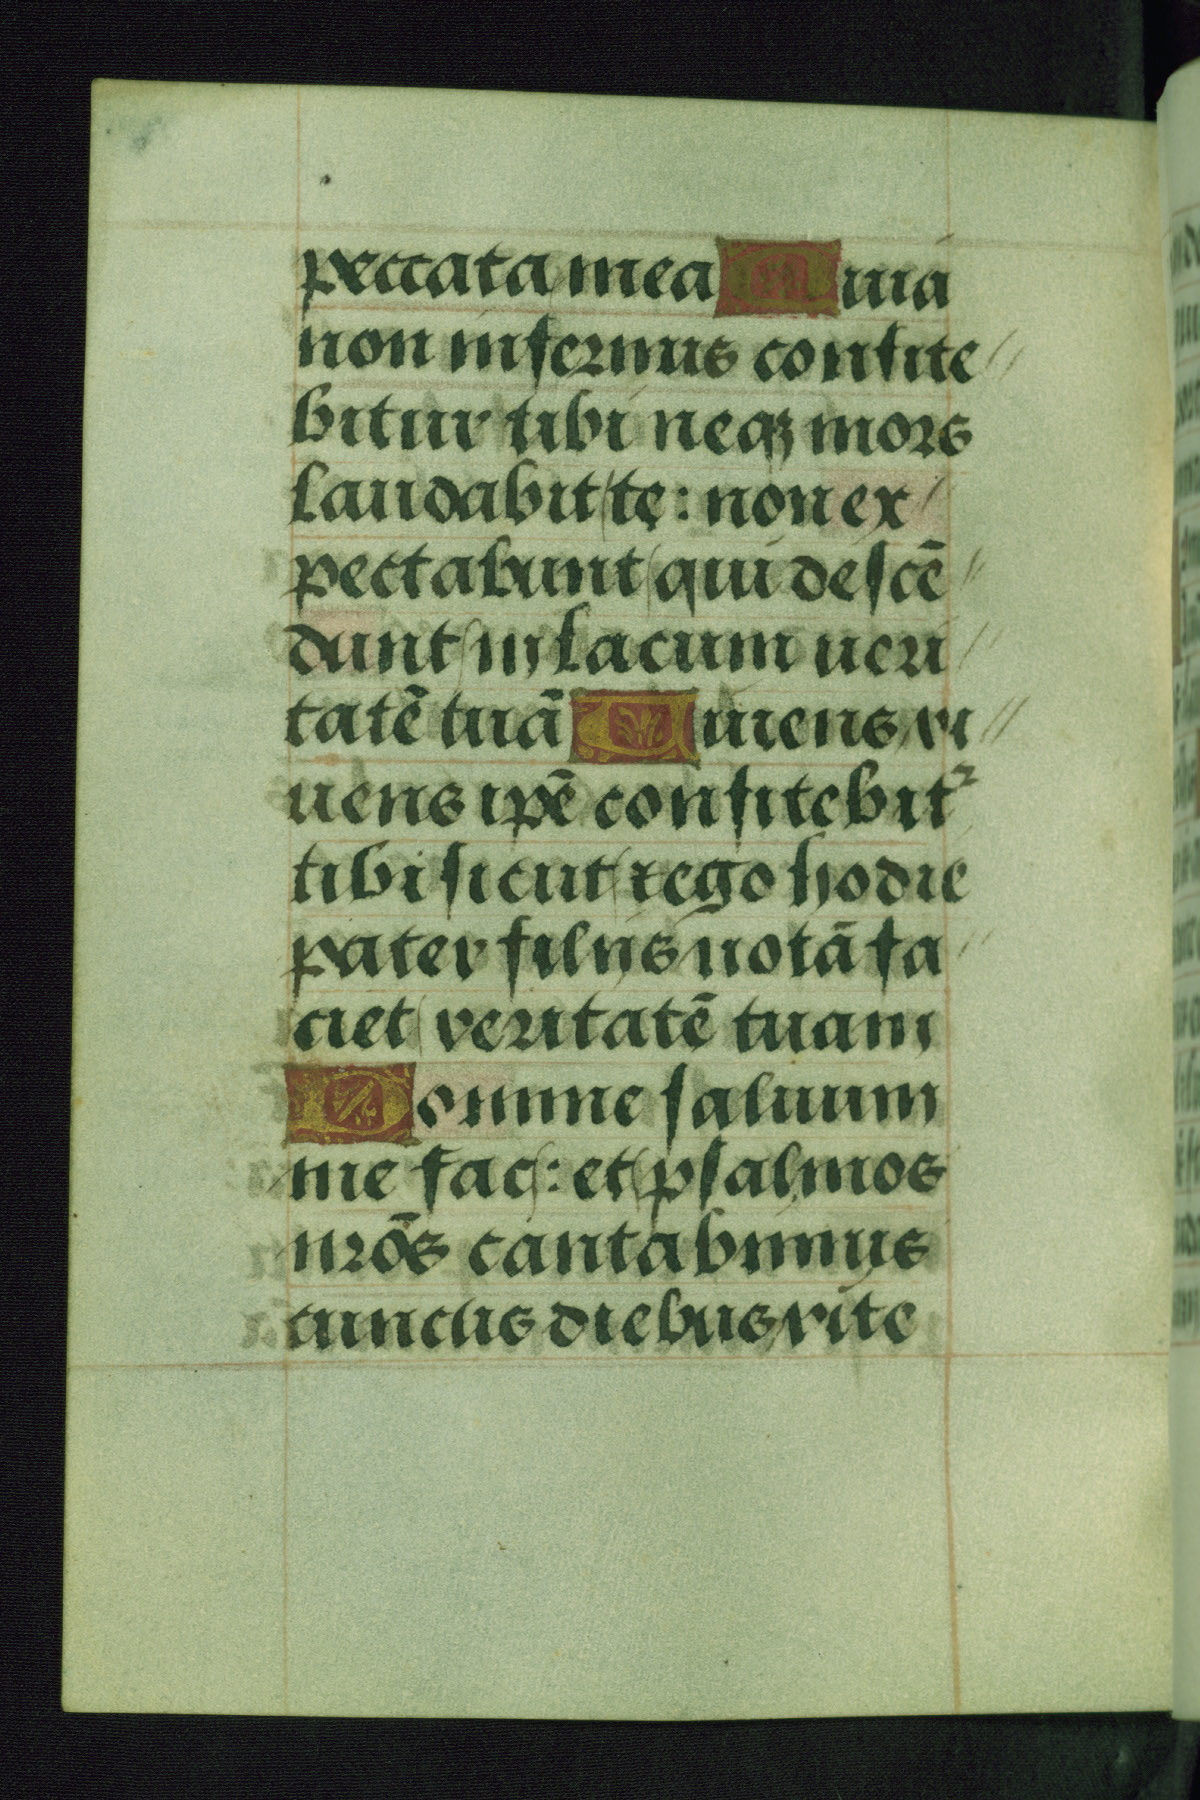 peccata mea Quia
non infernus confite
bitur tibi neqꝫ mors
laudabit te: non ex
pectabunt qui descē
dunt in lacum ueri
tatē tuā Viuens vi
uens ipē confitebit᷑
tibi sicut et ego hodie
pater filijs notā fa
ciet veritatē tuam
Domine saluum
me fac: et psalmos
nr̄os cantabimus
cunctis diebus vite